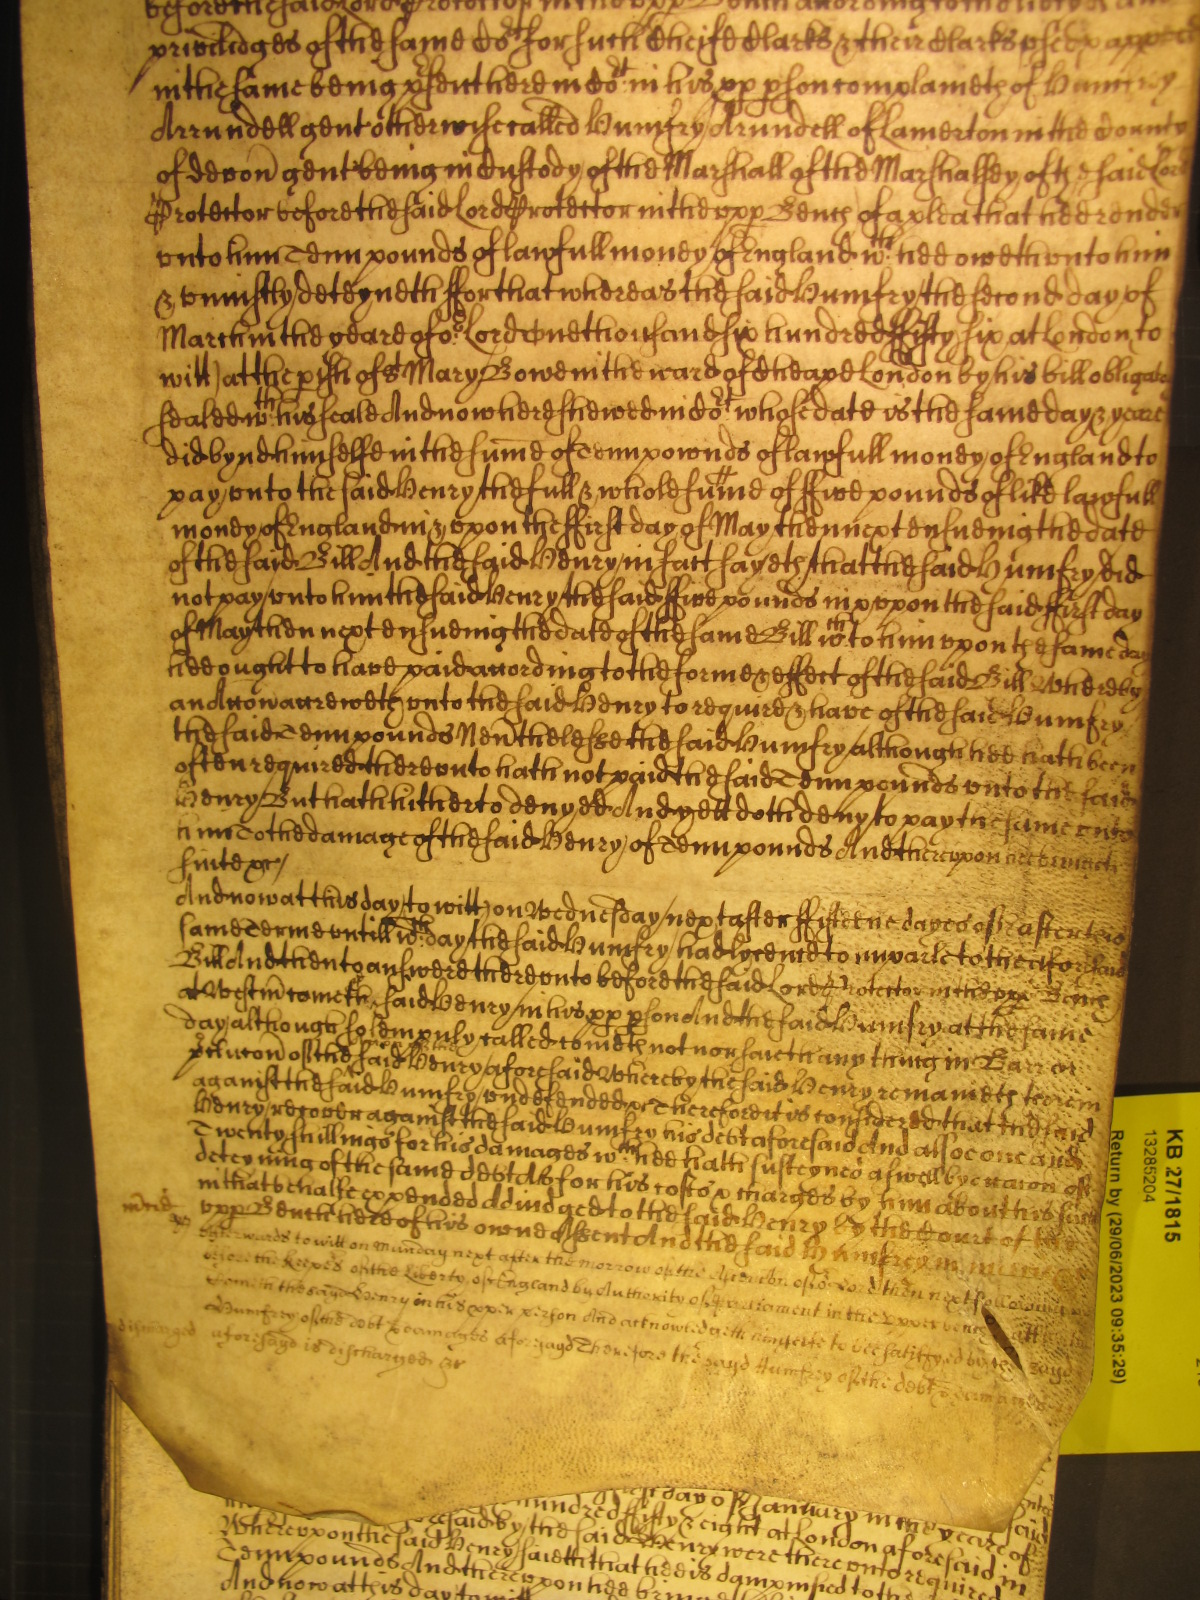 before the said Lord Protector in the upp Bench according to the
priviledges of the same Co:rt for such Cheife Clarks & their Clarks
in the same being psent here in Co:rt in his pp pson complaineth of Humfry
Arrundell gent otherwise called Humfry Arundell of Lamerton in the County
of devon gent being in Custody of the Marshall of the Marshalsey of the said Lord
Protector before the said Lord Protector in the upp Bench of a plea that hee render
unto him Tenn pounds of lawfull money of England w:ch hee oweth unto him
& uniustly deteyneth ffor that whereas the said Humfry the second day of
March in the yeare of o:r Lord One thousand six hundred ffifty six at London to
witt at the pish of St Mary Bowe in the ward of Cheape London by his bill obligat
sealed wth his seale And now here shewed in Co:rt whose date is the same day & yeare
did bynd himselfe in the sume of Tenn pownds of lawfull money of England to
pay unto the said Henry the full & whole sume of ffive pounds of like lawfull
money of England in & upon the ffirst day of May then next ensueing the date
of the said Bill And the said Henry in fact sayeth that the said Humfry did
not pay unto him the said Henry the said ffive pounds in & upon the said ffirst day
of May then next ensueing the date of the same Bill w:ch to him upon the same day
hee ought to have paid according to the forme & effect of the said Bill Whereby
an Acc̄on accreweth unto the said Henry to require & have of the said Humfry
the said Tenn pounds Nev̄theles the said Humfry although hee hath been
often required thereunto hath not paid the said Tenn pounds unto the said
Henry But hath hitherto denyed And yett doth deny to pay the same unto
him To the damage of the said Henry of Tenn pounds And thereupon
suite &c
And now at this day to witt on Wednesday next after ffifteene dayes of Easter this
same Terme untill w:ch day the said Humfry had lycence to imparle to the aforesaid
Bill And then to answere thereunto before the said Lord Protector in the upp Bench
at Westm̄ cometh said Henry in his pp pson And the said Humfry at the same
day although solempnly called cometh not nor saieth any thing in Barr or
of the said Henry aforesaid Whereby the said Henry remaineth therein
against the said Humfry undefended &c Therefore it is considered that the said
Henry recover against the said Humfry his debt aforesaid And alsoe one and
Twenty shillings for his damages wch hee hath susteyned aswell by reason of
deteyning of the same debt As for his costs & charges by him about his suite
in that behalfe expended adiudged to the said Henry by the Court of the
upp Bench here of his owne Assent And the said Humfrey in mercy
Afterwards to witt on Munday next after the morrow of the Ascention of o:r Lord then next following
before the keepers of the Liberty of England by Authority of Parliament in the upper bench
Cometh the sayd Henry in his pper person And acknowledgeth himselfe to bee satisfyed by the sayd
Humfrey of the debt & damages aforesayd Therefore the sayd Humfrey of the debt & damages
discharged aforesayd is discharged &c
KB 27/1815
13285204
Return by (29/06/2023 09:35:29)
day of January in the yeare of
aforesaid by the said hundred ffifty & eight at London aforesaid in
Whereupon the said Henry saieth that hee is dampnified to the
Tenn pounds And thereupon hee
And now at this day to witt